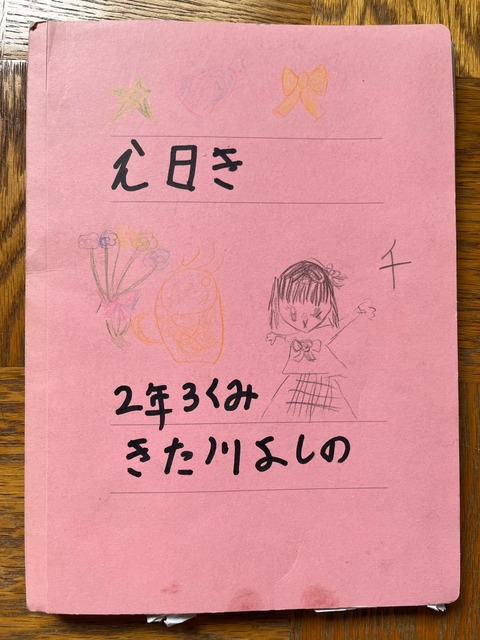 え日き
千
2年3くみ
きた川よしの